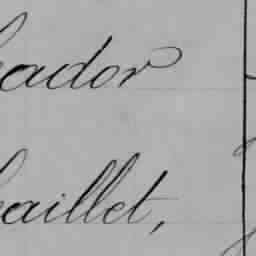 hador
haillet,